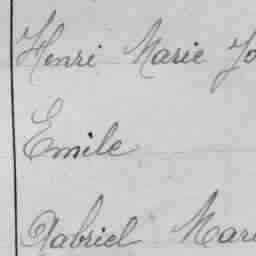 Henri Marie Jo
Emile
Gabriel Mari